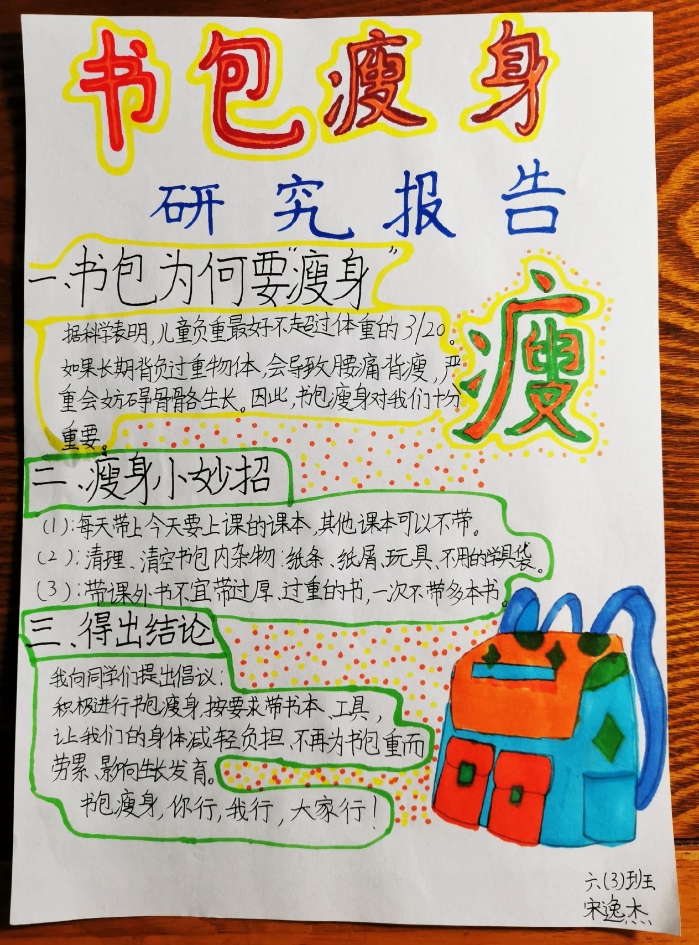 书包瘦身
研究报告
一、书包为何要“瘦身”
据科学表明,儿童负重最好不超过体重的3/20。
如果长期背负过重物体,会导致腰痛背瘦,严
重会妨碍骨骼生长。因此,书包瘦身对我们十分
重要。
瘦
二、瘦身小妙招
(1):每天带上今天要上课的课本,其他课本可以不带。
(2):清理、清空书包内杂物:纸条、纸屑、玩具、不用的学具袋。
(3):带课外书不宜带过厚、过重的书,一次不带多本书。
三、得出结论
我向同学们提出倡议:
积极进行书包瘦身,按要求带书本、工具,
让我们的身体减轻负担、不再为书包重而
劳累、影响生长发育。
书包瘦身,你行,我行,大家行!
六(3)班
宋逸杰